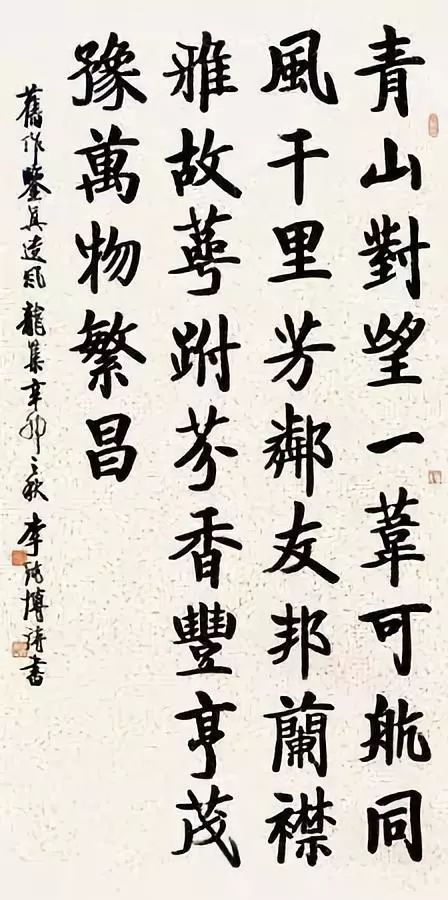 青山對望一葦可航同
風千里芳鄰友邦蘭襟
雅故蕚跗芬香豐亨茂
豫萬物繁昌
舊作鑒真風龍集辛卯之秋李博書